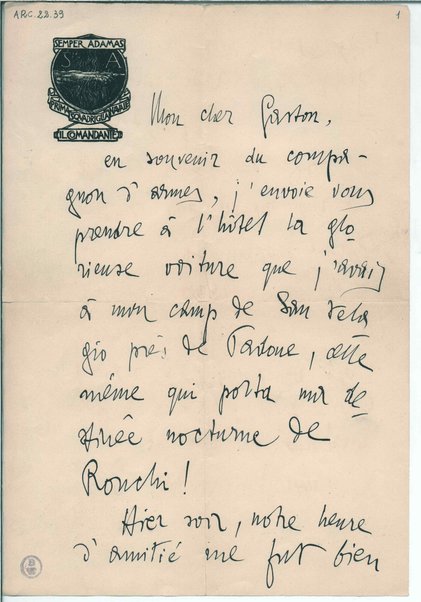 ARC.22.39
1
SEMPER ADAMAS
S A
PRIMA SQUADRIGLIA NAVALE
IL COMANDANTE
Mon cher Gaston,
en souvenir du compa-
gnon d'armes, j'envoie vous
prendre à l'hôtel la glo-
rieuse voiture que j'avais
à mon camp de San Pela
gio près de Padoue, cette
même qui porta ma de-
stinée nocturne de
Ronchi!
Hier soir, notre heure
d'amitié me fut bien